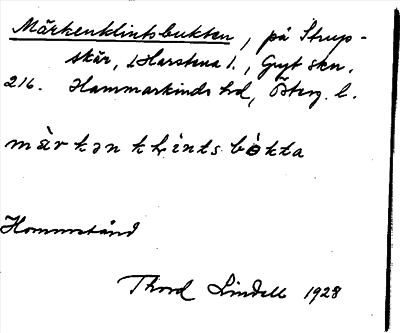 Märkenklintsbukten, på Strup-
skär, Harstena 1., Gryt skn.
216. Hammarkinds hd, Österg. l.
märkən klintsbòkta
Thord Lindell 1928